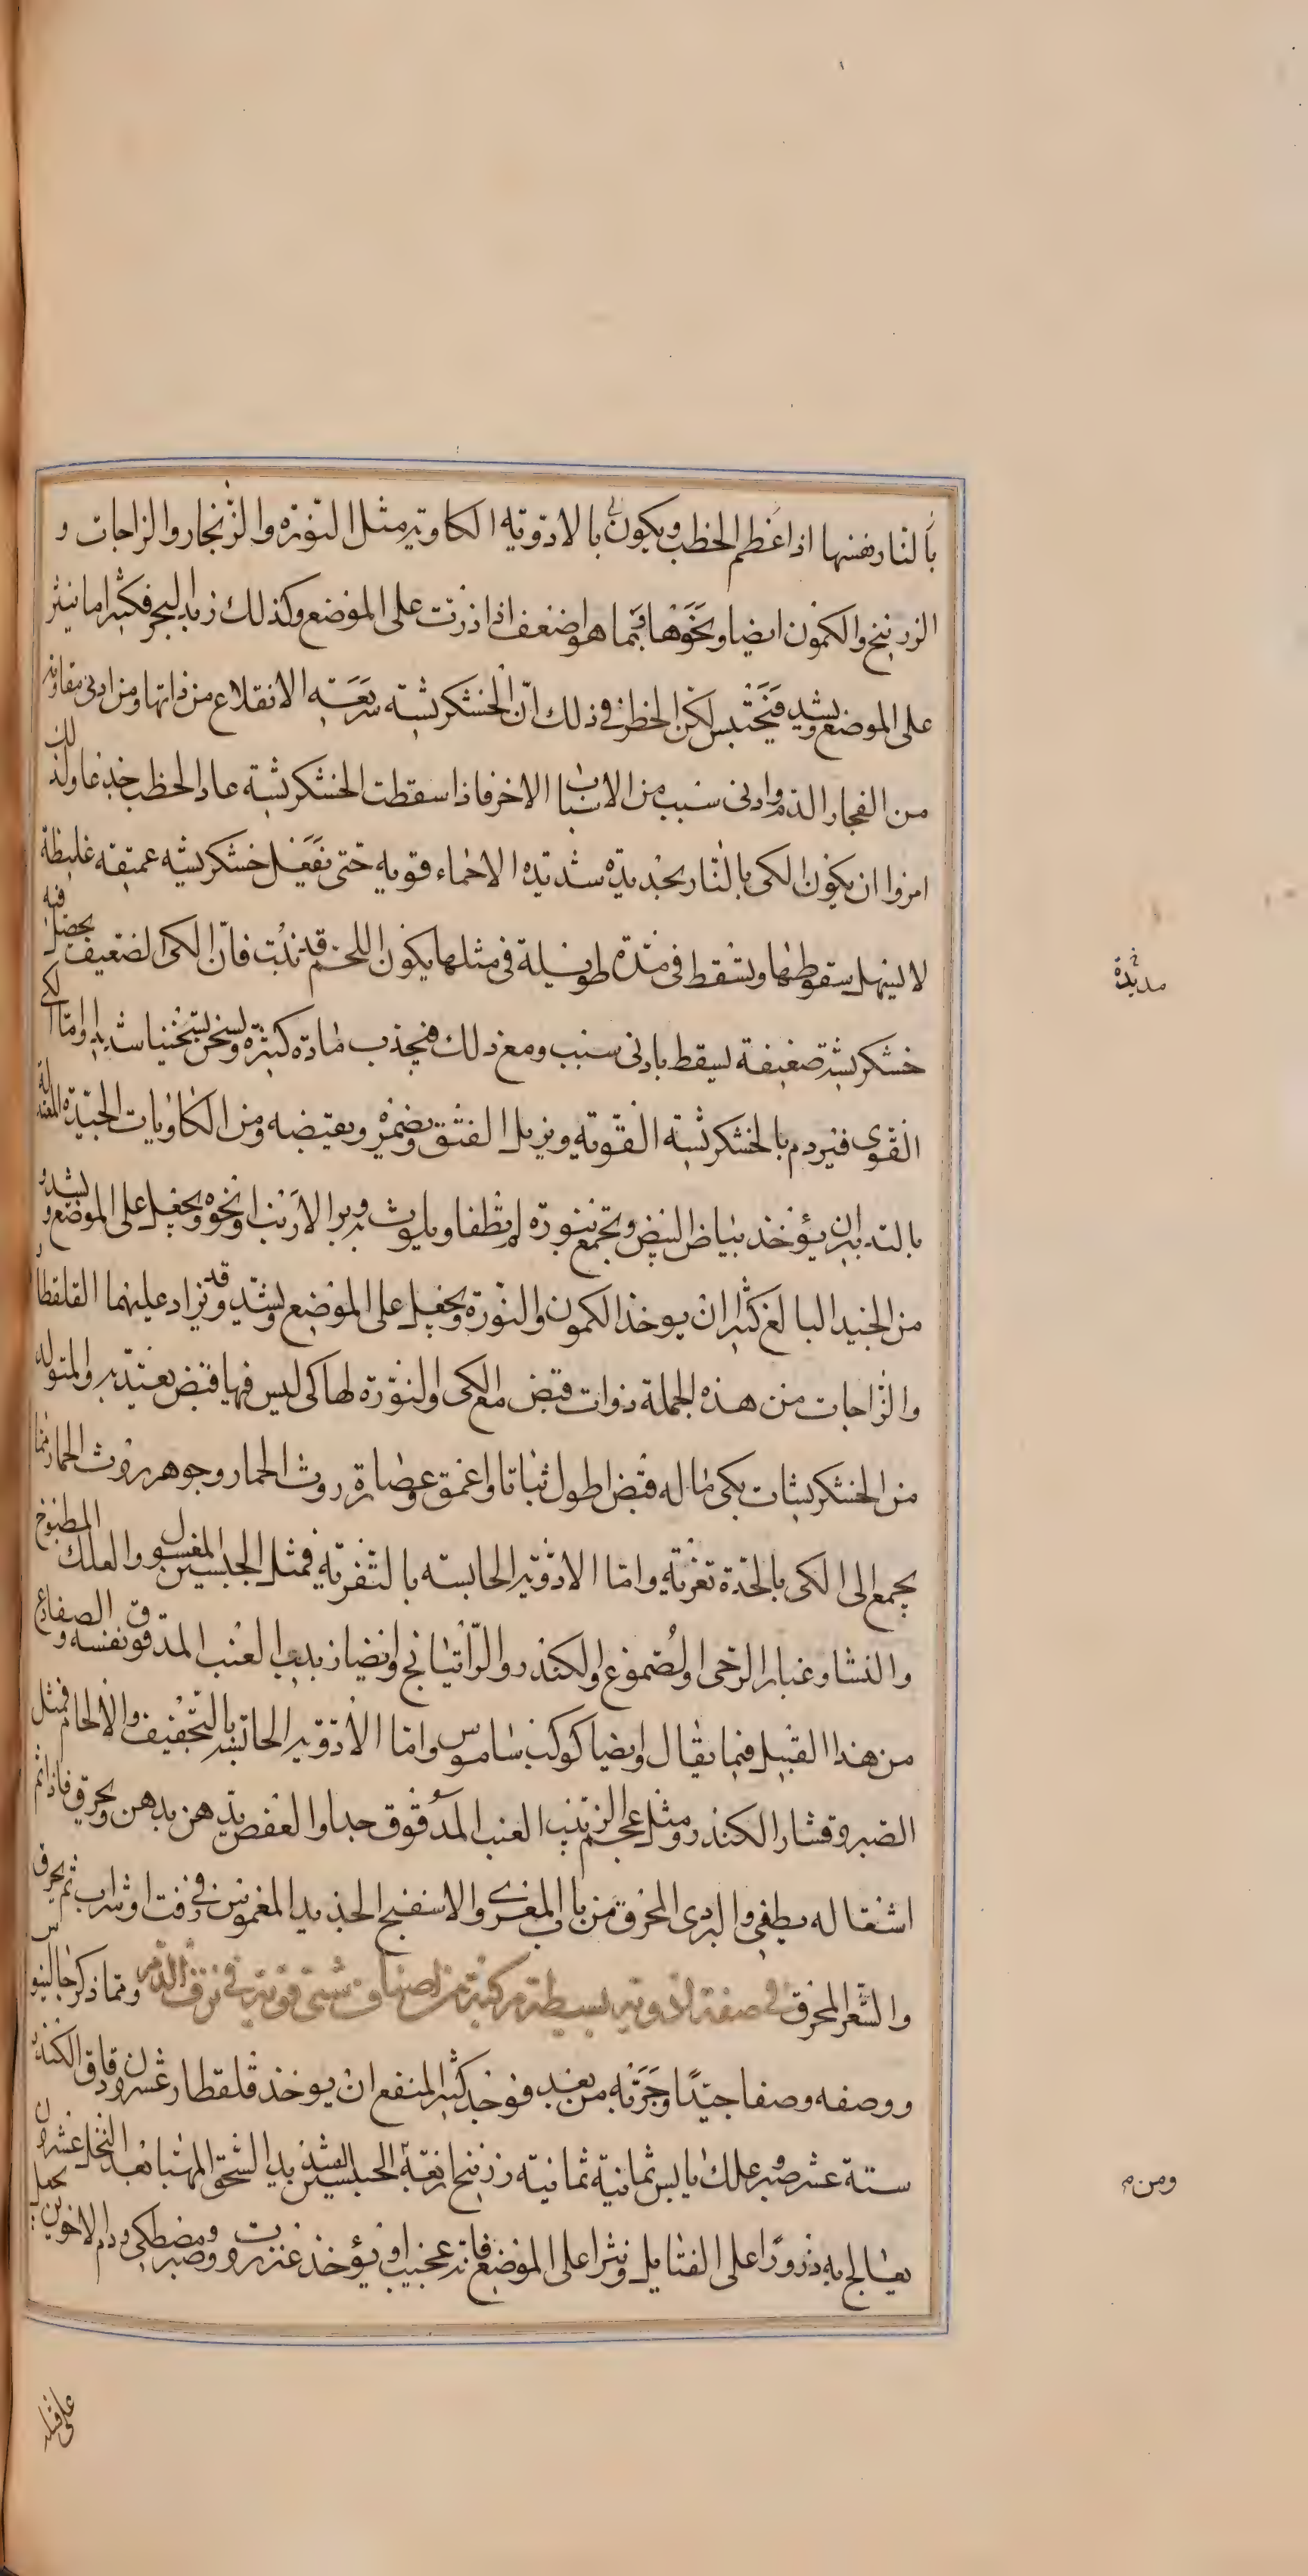 بالنار نفسها اذا عظم الخطب ويكون بالادوية الكاوية مثل النورة والزنجار والزاجات و
الزرنيخ والكمون ايضا ونحوها فيما هو اضعف اذا ذرت على الموضع وكذلك زبد البحر فكثيرا ما ينثر
على الموضع ويشد فيحتبس لكن الخطر في ذلك ان الخشكريشة سريعة الانقلاع من ذاتها ومن ادنى مقاومة
من انفجار الدم وادنى سبب من الاسباب الاخر فاذا سقطت الخشكريشة عاد الخطب جذعا ولذلك
امروا ان يكون الكي بالنار بحديدة شديدة الاحماء قوية حتى تفعل خشكريشة عميقة غليظة
لا يسهل سقوطها ويسقط في مدة طويلة في مثلها يكون اللحم قد نبت فان الكي الضعيف يحصل فيه
خشكريشة ضعيفة يسقط بادنى سبب ومع ذلك فيجذب مادة كثيرة ويسخن تسخينا شديدا واما الكي
القوي فيردم بالخشكريشة القوية ويزيل الفتق ويضمر ويقبضه ومن الكاويات الجيدة المعتدلة
بالتدبير ان يؤخذ بياض البيض ويجمع بنورة لم تطفا ويلوث به وبر الارنب او نحوه ويجعل على الموضع ويشد و
من الجيد البالغ كثيرا ان يوخذ الكمون والنورة ويجعل على الموضع ويشد وقد يزاد عليهما القلقطار
والزاجات من هذه الجملة ذوات قبض مع الكي والنورة لها كي ليس فيها قبض يعتد به والمتولد
من الخشكريشات بكي ما له قبض اطول ثباتا واعمق وعصارة روث الحمار وجوهر روث الحمار مما
يجمع الى الكي بالحدة تغرية واما الادوية الحابسة بالتغرية فمثل الجبسين المغسول والعلك المطبوخ
والنشا وغبار الرحى او لصموغ والكندر والراتيانج وايضا زبيب العنب المدقوق نفسه والضفادع
من هذا القبيل فيما يقال وايضا كوكب ساموس واما الادوية الحابسة بالتجفيف والالحام فمثل
الصبر وقشار الكندر ومثل عجم الزبيب العنب المدقوق جدا والعفص يدهن بدهن ويحرق فاذا تم
اشتعاله يطفى والبردى المحرق من باب المغرى والاسفنج الجديد المغموس في زفت او شراب ثم يحرق
والشعر المحرق في صفة ادوية بسيطة مركبة من اصناف شتى قوية في نزف الدم ومما ذكر جالينوس
ووصفه وصفا جيدا وجربه من بعد فوجد كثير المنفع ان يوخذ قلقطار عشرون دقاق الكندر
ستة عشر وصبر علك يابس ثمانية ثمانية زرنيخ اربعة الجبسين الشديد السحق المهبا بعد النخل عشرون
يعالج به ذرورا على الفتايل ونثرا على الموضع فانه عجيب او يؤخذ عنزروت وصبر ومصطكى ودم الاخوين يجعل
على فتيلة
مدة
ومن م